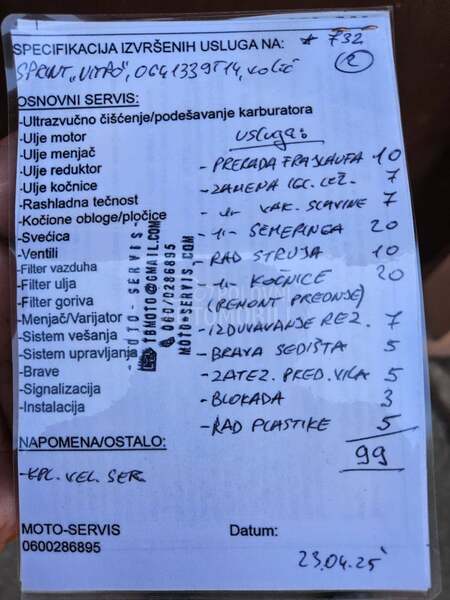 SPECIFIKACIJA IZVRŠENIH USLUGA NA: * 732
2
SPRINT "VITPO", 0641339514, KOLIĆ
OSNOVNI SERVIS:
-Ultrazvučno čišćenje/podešavanje karburatora
-Ulje motor
-Ulje menjač
-Ulje reduktor
-Ulje kočnice
-Rashladna tečnost
-Kočione obloge/pločice
-Svećica
-Ventili
-Filter vazduha
-Filter ulja
-Filter goriva
-Menjač/Varijator
-Sistem vešanja
-Sistem upravljanja
-Brave
-Signalizacija
-Instalacija
USLUGA:
-PRERADA FRAJLAUFA 10
-ZAMENA IGL. LEŽ. 7
-11- VAK. SLAVINE 7
-11- SEMERINGA 20
-RAD STRUJA 10
-11- KOČNICE 20
(REMONT PREDNJE)
-IZDUVAVANJE REZ. 7
-BRAVA SEDIŠTA 5
-ZATEZ. PRED. VILA 5
-BLOKADA 3
-RAD PLASTIKE 5
99
-MOTO-SERVIS-
TBMOTO@GMAIL.COM
060/0286895
MOTO-SERVIS.COM
NAPOMENA/OSTALO:
-KPL. VEL. SER.
MOTO-SERVIS
0600286895
Datum:
23.04.25